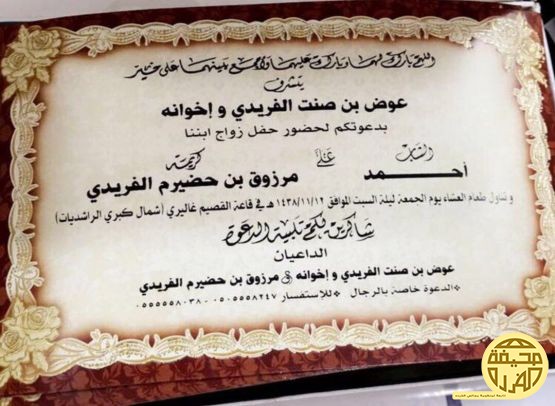 اللهم بارك لهما وبارك عليهما واجمع بينهما على خير
يتشرف
عوض بن صنت الفريدي و إخوانه
بدعوتكم لحضور حفل زواج ابننا
الشاب على كريمة
أحمد مرزوق بن حضيرم الفريدي
و تناول طعام العشاء يوم الجمعة ليلة السبت الموافق ١٤٣٨/١١/١٢ هـ في قاعة القصيم غاليري (شمال كبري الراشديات)
شاكرين لكم تلبية الدعوة
الداعيان
عوض بن صنت الفريدي و إخوانه & مرزوق بن حضيرم الفريدي
* الدعوة خاصة بالرجال * للإستفسار ٠٥٠٥٥٥٨٢٤٧ - ٠٥٥٥٥٥٨٠٣٨
صحيفة